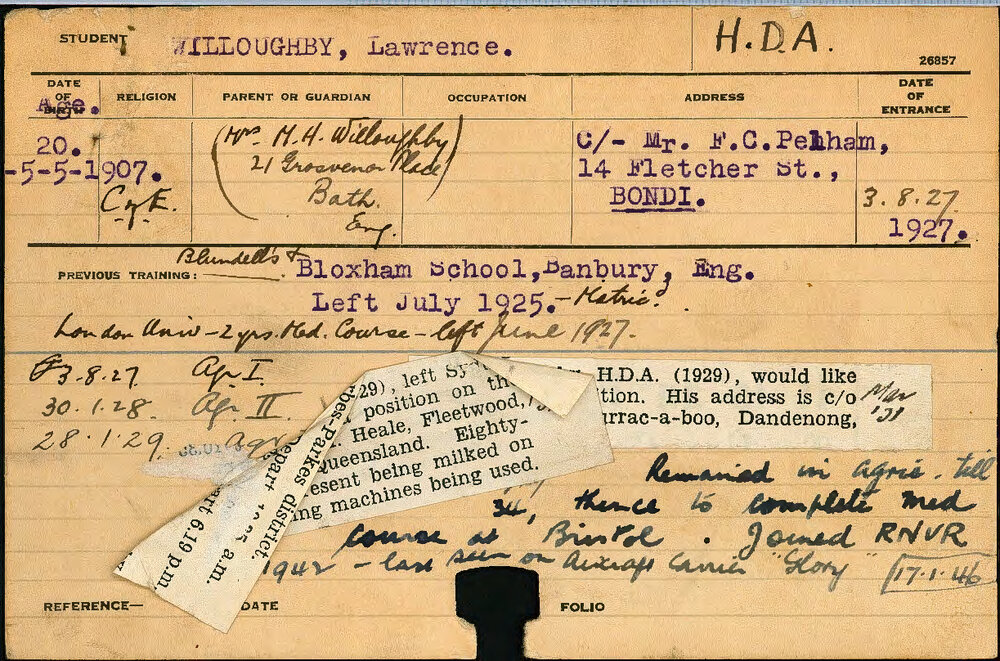 STUDENT WILLOUGHBY, Lawrence. H.D.A.
26857
DATE OF BIRTH Age. RELIGION PARENT OR GUARDIAN OCCUPATION ADDRESS DATE OF ENTRANCE
20. (Mrs. H. A. Willoughby C/- Mr. F.C.Pelham,
-5-5-1907. 21 Grosvenor Place) 14 Fletcher St.,
C of E. Bath. BONDI. 3.8.27
Eng. 1927.
Blundell's &
PREVIOUS TRAINING: Bloxham School, Banbury, Eng.
Left July 1925. - Matric.
London Univ - 2 yrs. Med. Course - left June 1927.
3.8.27 Agr I.
30.1.28. Agr. II.
28.1.29. Agr
29), left
position on the
. Heale, Fleetwood,
Queensland. Eighty-
esent being milked on
ng machines being used.
bes-Parkes district.
epart a.m.
art 6.19 p.m.
H.D.A. (1929), would like
tion. His address is c/o
urrac-a-boo, Dandenong,
Mar '31
Remained in agric. till
34, thence to complete med
course at Bristol. Joined RNVR
1942 - last seen on Aircraft Carrier "Glory" 17.1.46
REFERENCE— DATE FOLIO